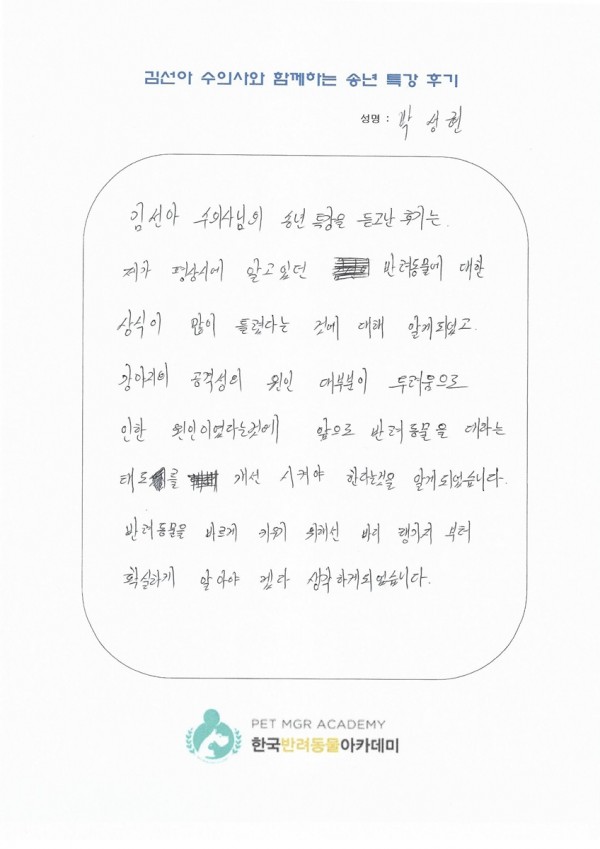 김선아 수의사와 함께하는 송년 특강 후기
성명 : 박성현
김선아 수의사님의 송년 특강을 듣고난 후기는.
제가 평상시에 알고있던 반려동물에 대한
상식이 많이 틀렸다는 것에 대해 알게되었고.
강아지의 공격성의 원인 대부분이 두려움으로
인한 원인이었다는것에 앞으로 반려동물을 대하는
태도를 개선 시켜야 한다는것을 알게되었습니다.
반려동물을 바르게 키우기 위해선 바디 랭귀지 부터
확실하게 알아야 겠다 생각하게되었습니다.
PET MGR ACADEMY
한국반려동물아카데미